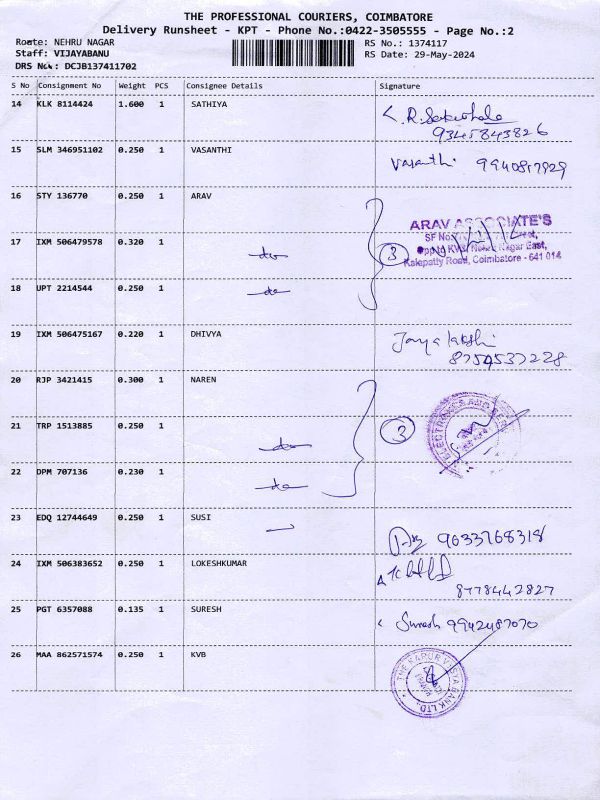 THE PROFESSIONAL COURIERS, COIMBATORE
Delivery Runsheet - KPT - Phone No.:0422-3505555 - Page No.:2
Route: NEHRU NAGAR RS No.: 1374117
Staff: VIJAYABANU RS Date: 29-May-2024
DRS No.: DCJB137411702
S No Consignment No Weight PCS Consignee Details Signature
14 KLK 8114424 1.600 1 SATHIYA
9345843826
15 SLM 346951102 0.250 1 VASANTHI Vasanthi
16 STY 136770 0.250 1 ARAV
ARAV ASSOCIATE'S
17 IXM 506479578 0.320 1 3
Kalapatty Road, Coimbatore - 641 014
18 UPT 2214544 0.250 1
19 IXM 506475167 0.220 1 DHIVYA
8754537228
20 RJP 3421415 0.300 1 NAREN
21 TRP 1513885 0.250 1 3
22 DPM 707136 0.230 1
23 EDQ 12744649 0.250 1 SUSI
9633768318
24 IXM 506383652 0.250 1 LOKESHKUMAR
8778442827
25 PGT 6357088 0.135 1 SURESH Suresh 9942487070
26 MAA 862571574 0.250 1 KVB
THE KARUR VYSYA BANK LTD